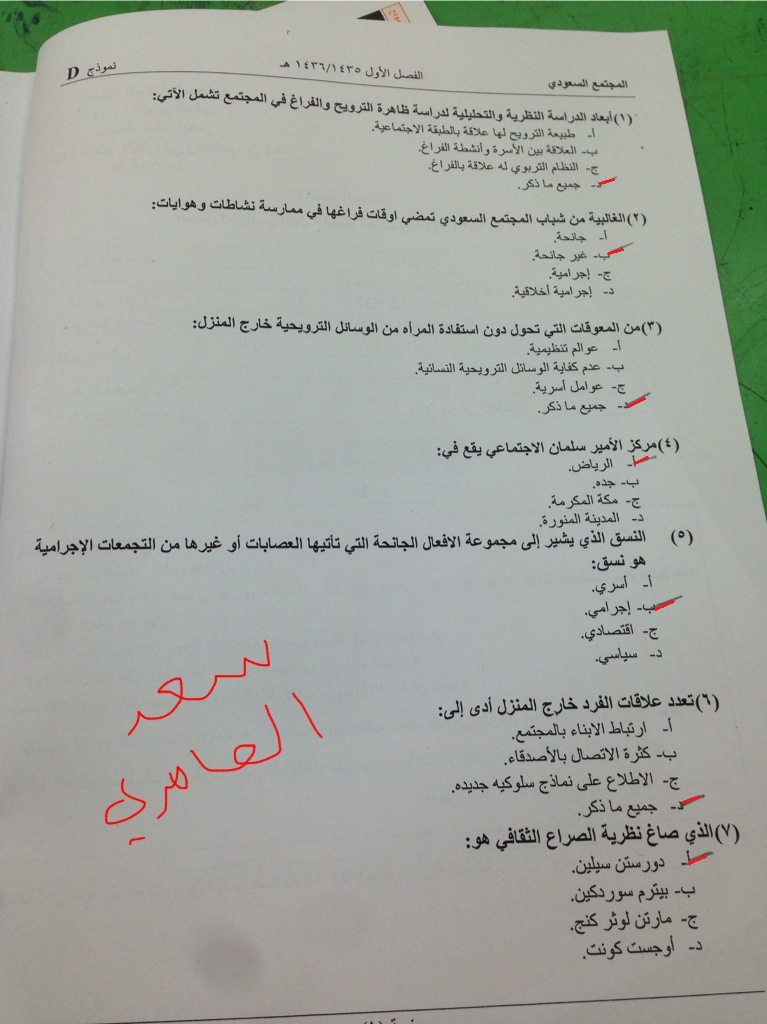 المجتمع السعودي الفصل الأول ١٤٣٦/١٤٣٥ هـ نموذج D
(١)أبعاد الدراسة النظرية والتحليلية لدراسة ظاهرة الترويح والفراغ في المجتمع تشمل الآتي:
أ- طبيعة الترويح لها علاقة بالطبقة الاجتماعية.
ب- العلاقة بين الأسرة وأنشطة الفراغ.
ج- النظام التربوي له علاقة بالفراغ.
د- جميع ما ذكر.
(٢)الغالبية من شباب المجتمع السعودي تمضي اوقات فراغها في ممارسة نشاطات وهوايات:
أ- جانحة.
ب- غير جانحة.
ج- إجرامية.
د- إجرامية أخلاقية.
(٣)من المعوقات التي تحول دون استفادة المرأه من الوسائل الترويحية خارج المنزل:
أ- عوالم تنظيمية.
ب- عدم كفاية الوسائل الترويحية النسائية.
ج- عوامل أسرية.
د- جميع ما ذكر.
(٤)مركز الأمير سلمان الاجتماعي يقع في:
أ- الرياض.
ب- جده.
ج- مكة المكرمة.
د- المدينة المنورة.
(٥) النسق الذي يشير إلى مجموعة الافعال الجانحة التي تأتيها العصابات أو غيرها من التجمعات الإجرامية
هو نسق:
أ- أسري.
ب- إجرامي.
ج- اقتصادي.
د- سياسي.
سعد
العامري
(٦)تعدد علاقات الفرد خارج المنزل أدى إلى:
أ- ارتباط الابناء بالمجتمع.
ب- كثرة الاتصال بالأصدقاء.
ج- الاطلاع على نماذج سلوكيه جديده.
د- جميع ما ذكر.
(٧)الذي صاغ نظرية الصراع الثقافي هو:
أ- دورستن سيلين.
ب- بيترم سوردكين.
ج- مارتن لوثر كنج.
د- أوجست كونت.